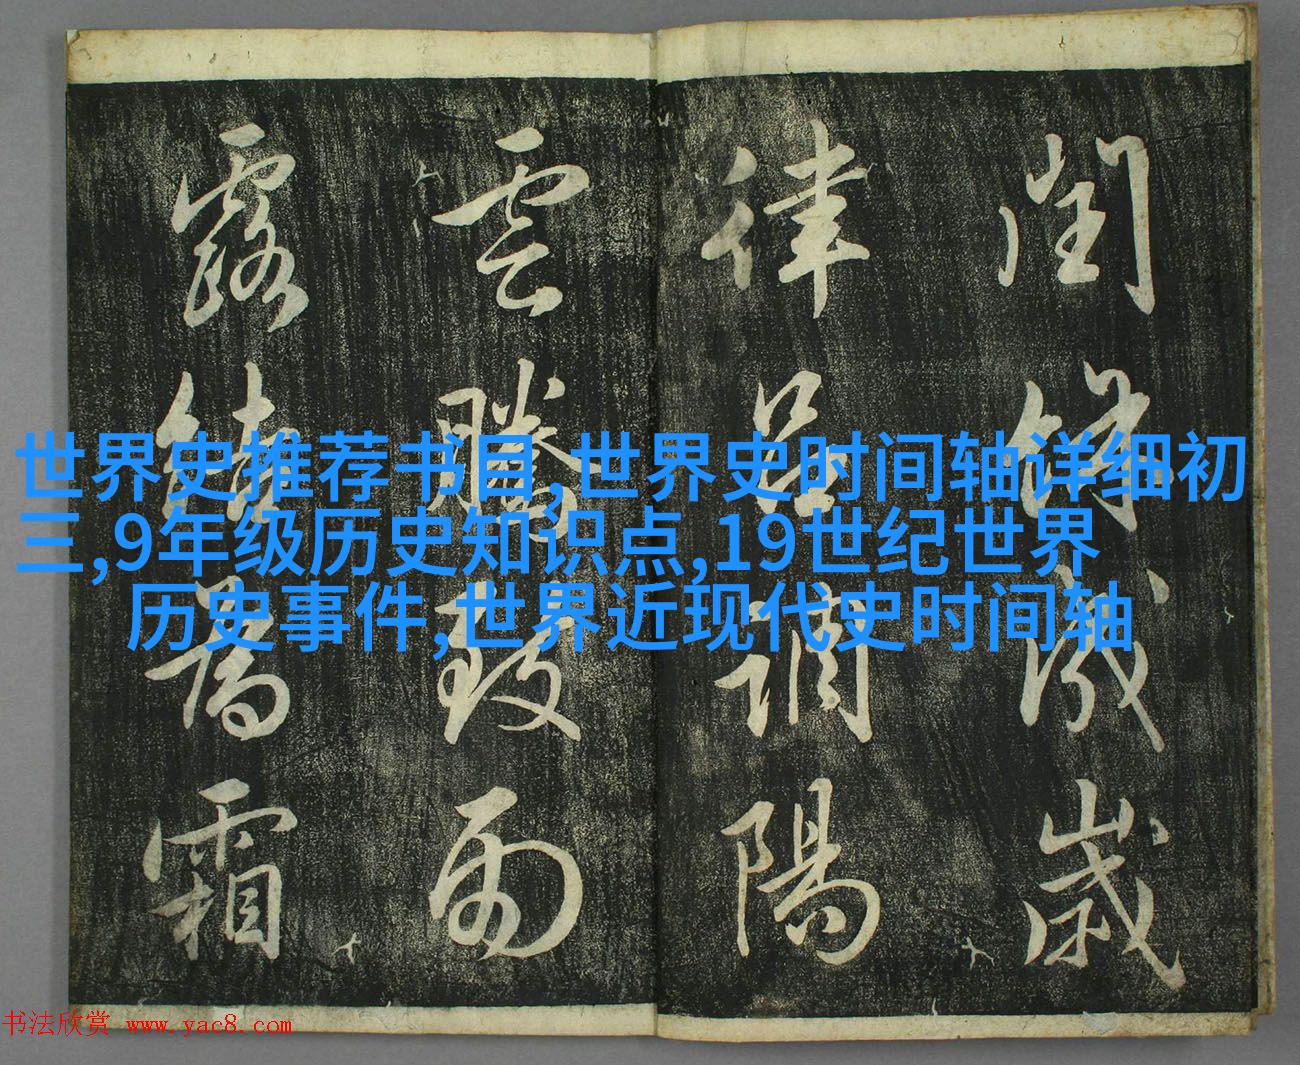 閏餘成歲
律呂調陽
雲騰致雨
露結為霜
世界史推荐书目,世界史时间轴详细初
三,9年级历史知识点,19世纪世界
历史事件,世界近现代史时间轴
书法欣赏 www.yac8.com